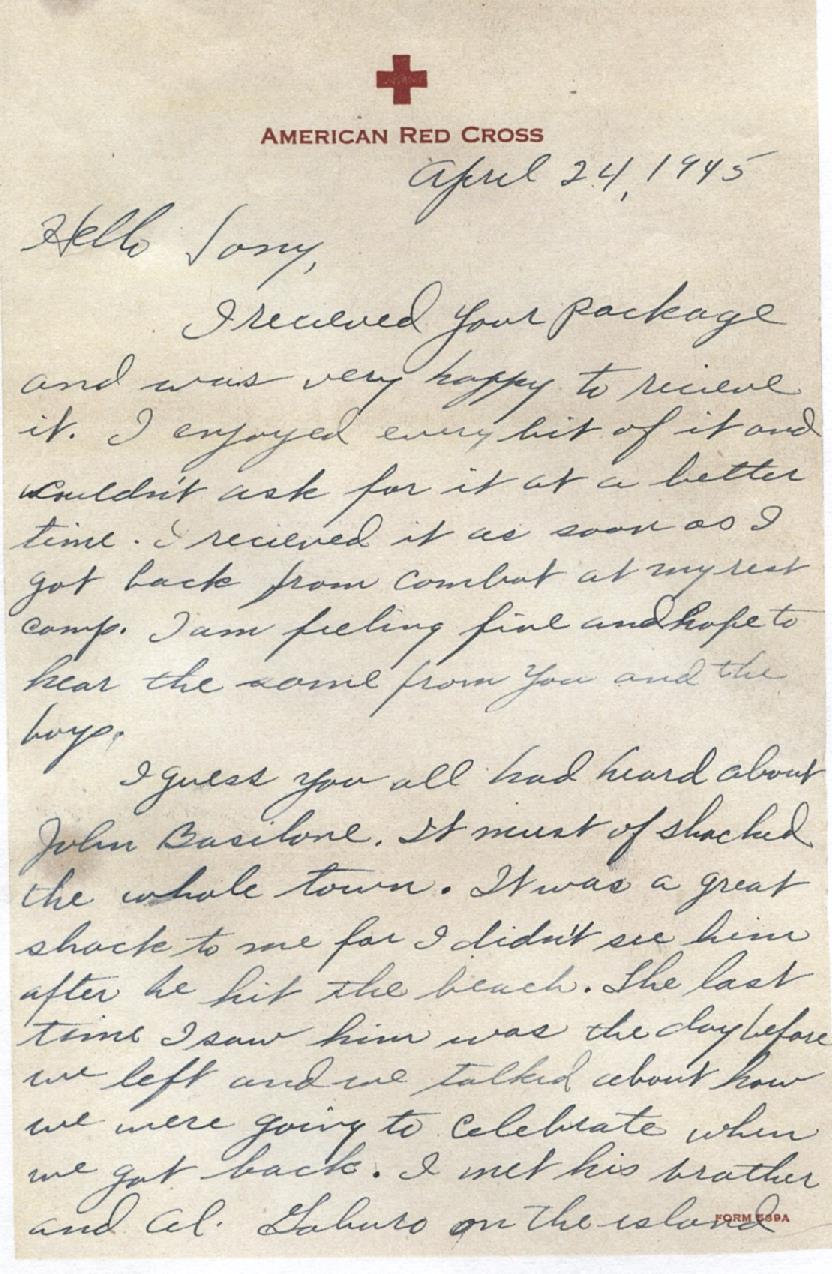 AMERICAN RED CROSS
April 24, 1945
Hello Tony,
I recieved your package
and was very happy to recieve
it. I enjoyed every bit of it and
wouldn't ask for it at a better
time. I recieved it as soon as I
got back from combat at my rest
camp. I am feeling fine and hope to
hear the same from you and the
boys.
I guess you all had heard about
John Basilone. It must of shocked
the whole town. It was a great
shock to me for I didn't see him
after he hit the beach. The last
time I saw him was the day before
we left and we talked about how
we were going to celebrate when
we got back. I met his brother
and Al. Gaburo on the island
FORM 539A